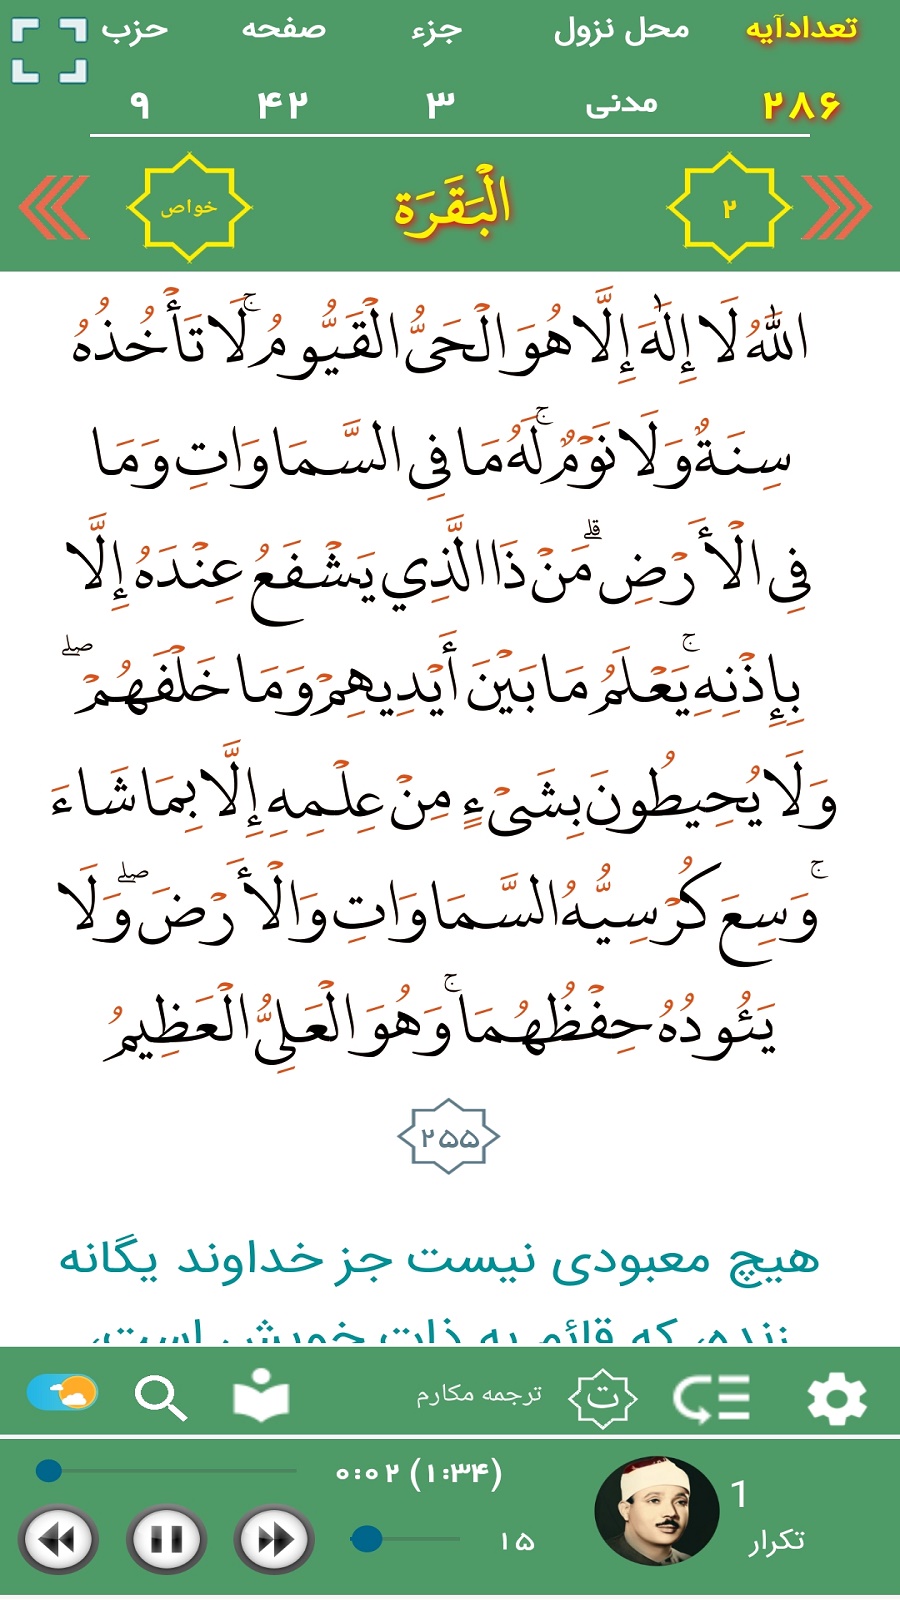 تعدادآیه محل نزول جزء صفحه حزب
۲۸۶ مدنی ۳ ۴۲ ۹
۲ الْبَقَرَة خواص
اللَّهُ لَا إِلَٰهَ إِلَّا هُوَ الْحَيُّ الْقَيُّومُ ۚ لَا تَأْخُذُهُ
سِنَةٌ وَلَا نَوْمٌ ۚ لَهُ مَا فِي السَّمَاوَاتِ وَمَا
فِي الْأَرْضِ ۗ مَنْ ذَا الَّذِي يَشْفَعُ عِنْدَهُ إِلَّا
بِإِذْنِهِ ۚ يَعْلَمُ مَا بَيْنَ أَيْدِيهِمْ وَمَا خَلْفَهُمْ ۖ
وَلَا يُحِيطُونَ بِشَيْءٍ مِنْ عِلْمِهِ إِلَّا بِمَا شَاءَ
ۚ وَسِعَ كُرْسِيُّهُ السَّمَاوَاتِ وَالْأَرْضَ ۖ وَلَا
يَئُودُهُ حِفْظُهُمَا ۚ وَهُوَ الْعَلِيُّ الْعَظِيمُ
۲۵۵
هیچ معبودی نیست جز خداوند یگانه
زنده، که قائم به ذات خویش است،
ت ترجمه مکارم
۰:۰۲ (۱:۳۴)
1
۱۵
تکرار